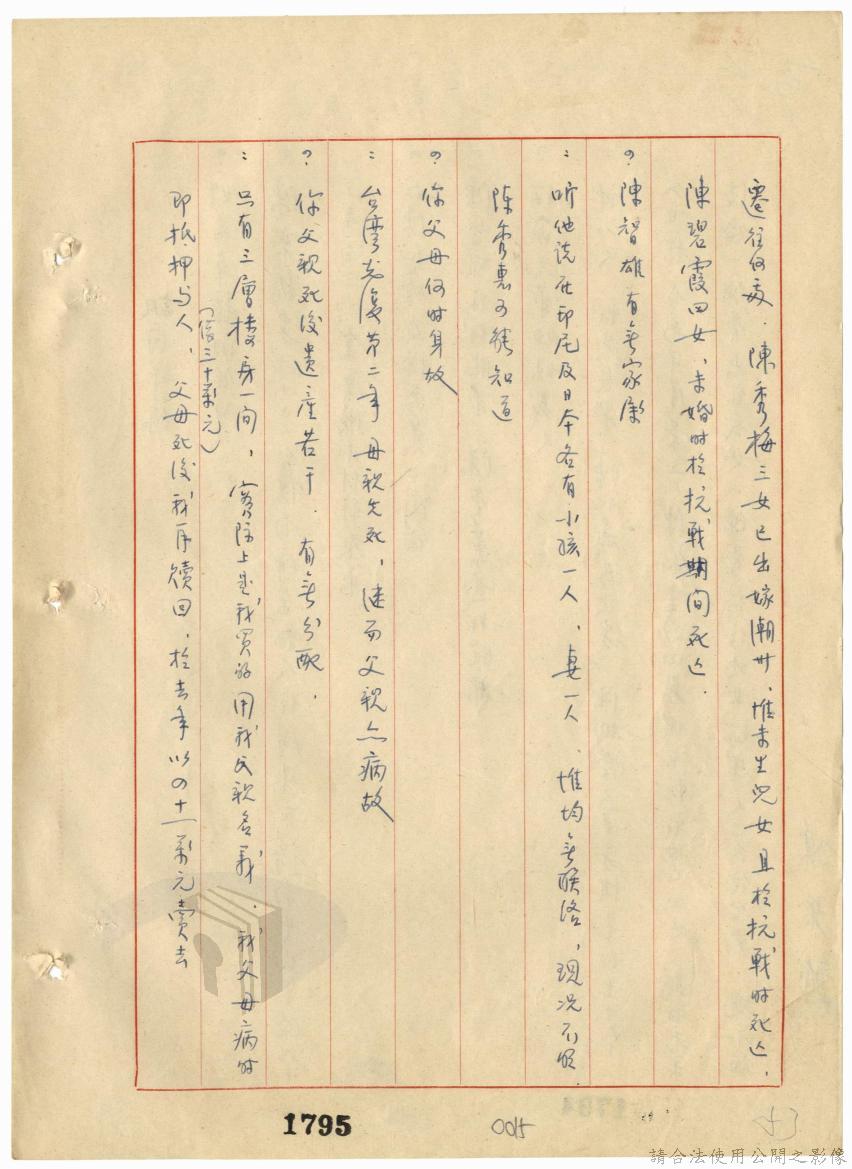 遷往何處．陳秀梅三女已出嫁潮州，惟未生兒女且於抗戰時死亡，
陳碧霞四女、未婚時於抗戰期间死亡．
？陳智雄有無家屬
：听他说在印尼及日本各有小孩一人，妻一人、惟均無联络，現况不明．
陳秀惠可能知道
？你父母何時身故
：台湾光復第二年母親先死，继而父親亦病故
？你父親死後遺產若干．有無分配．
：只有三層楼房一间，實际上是我買的用我父親名義．我父母病時
（僅三十萬元）
即抵押与人、父母死後我再贖回，於去年以四十一萬元賣去
1795
0015
請合法使用公開之影像